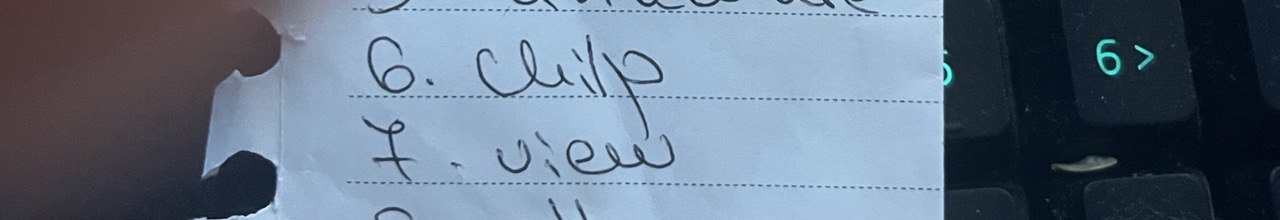 6. Chilp
7. view
6 >